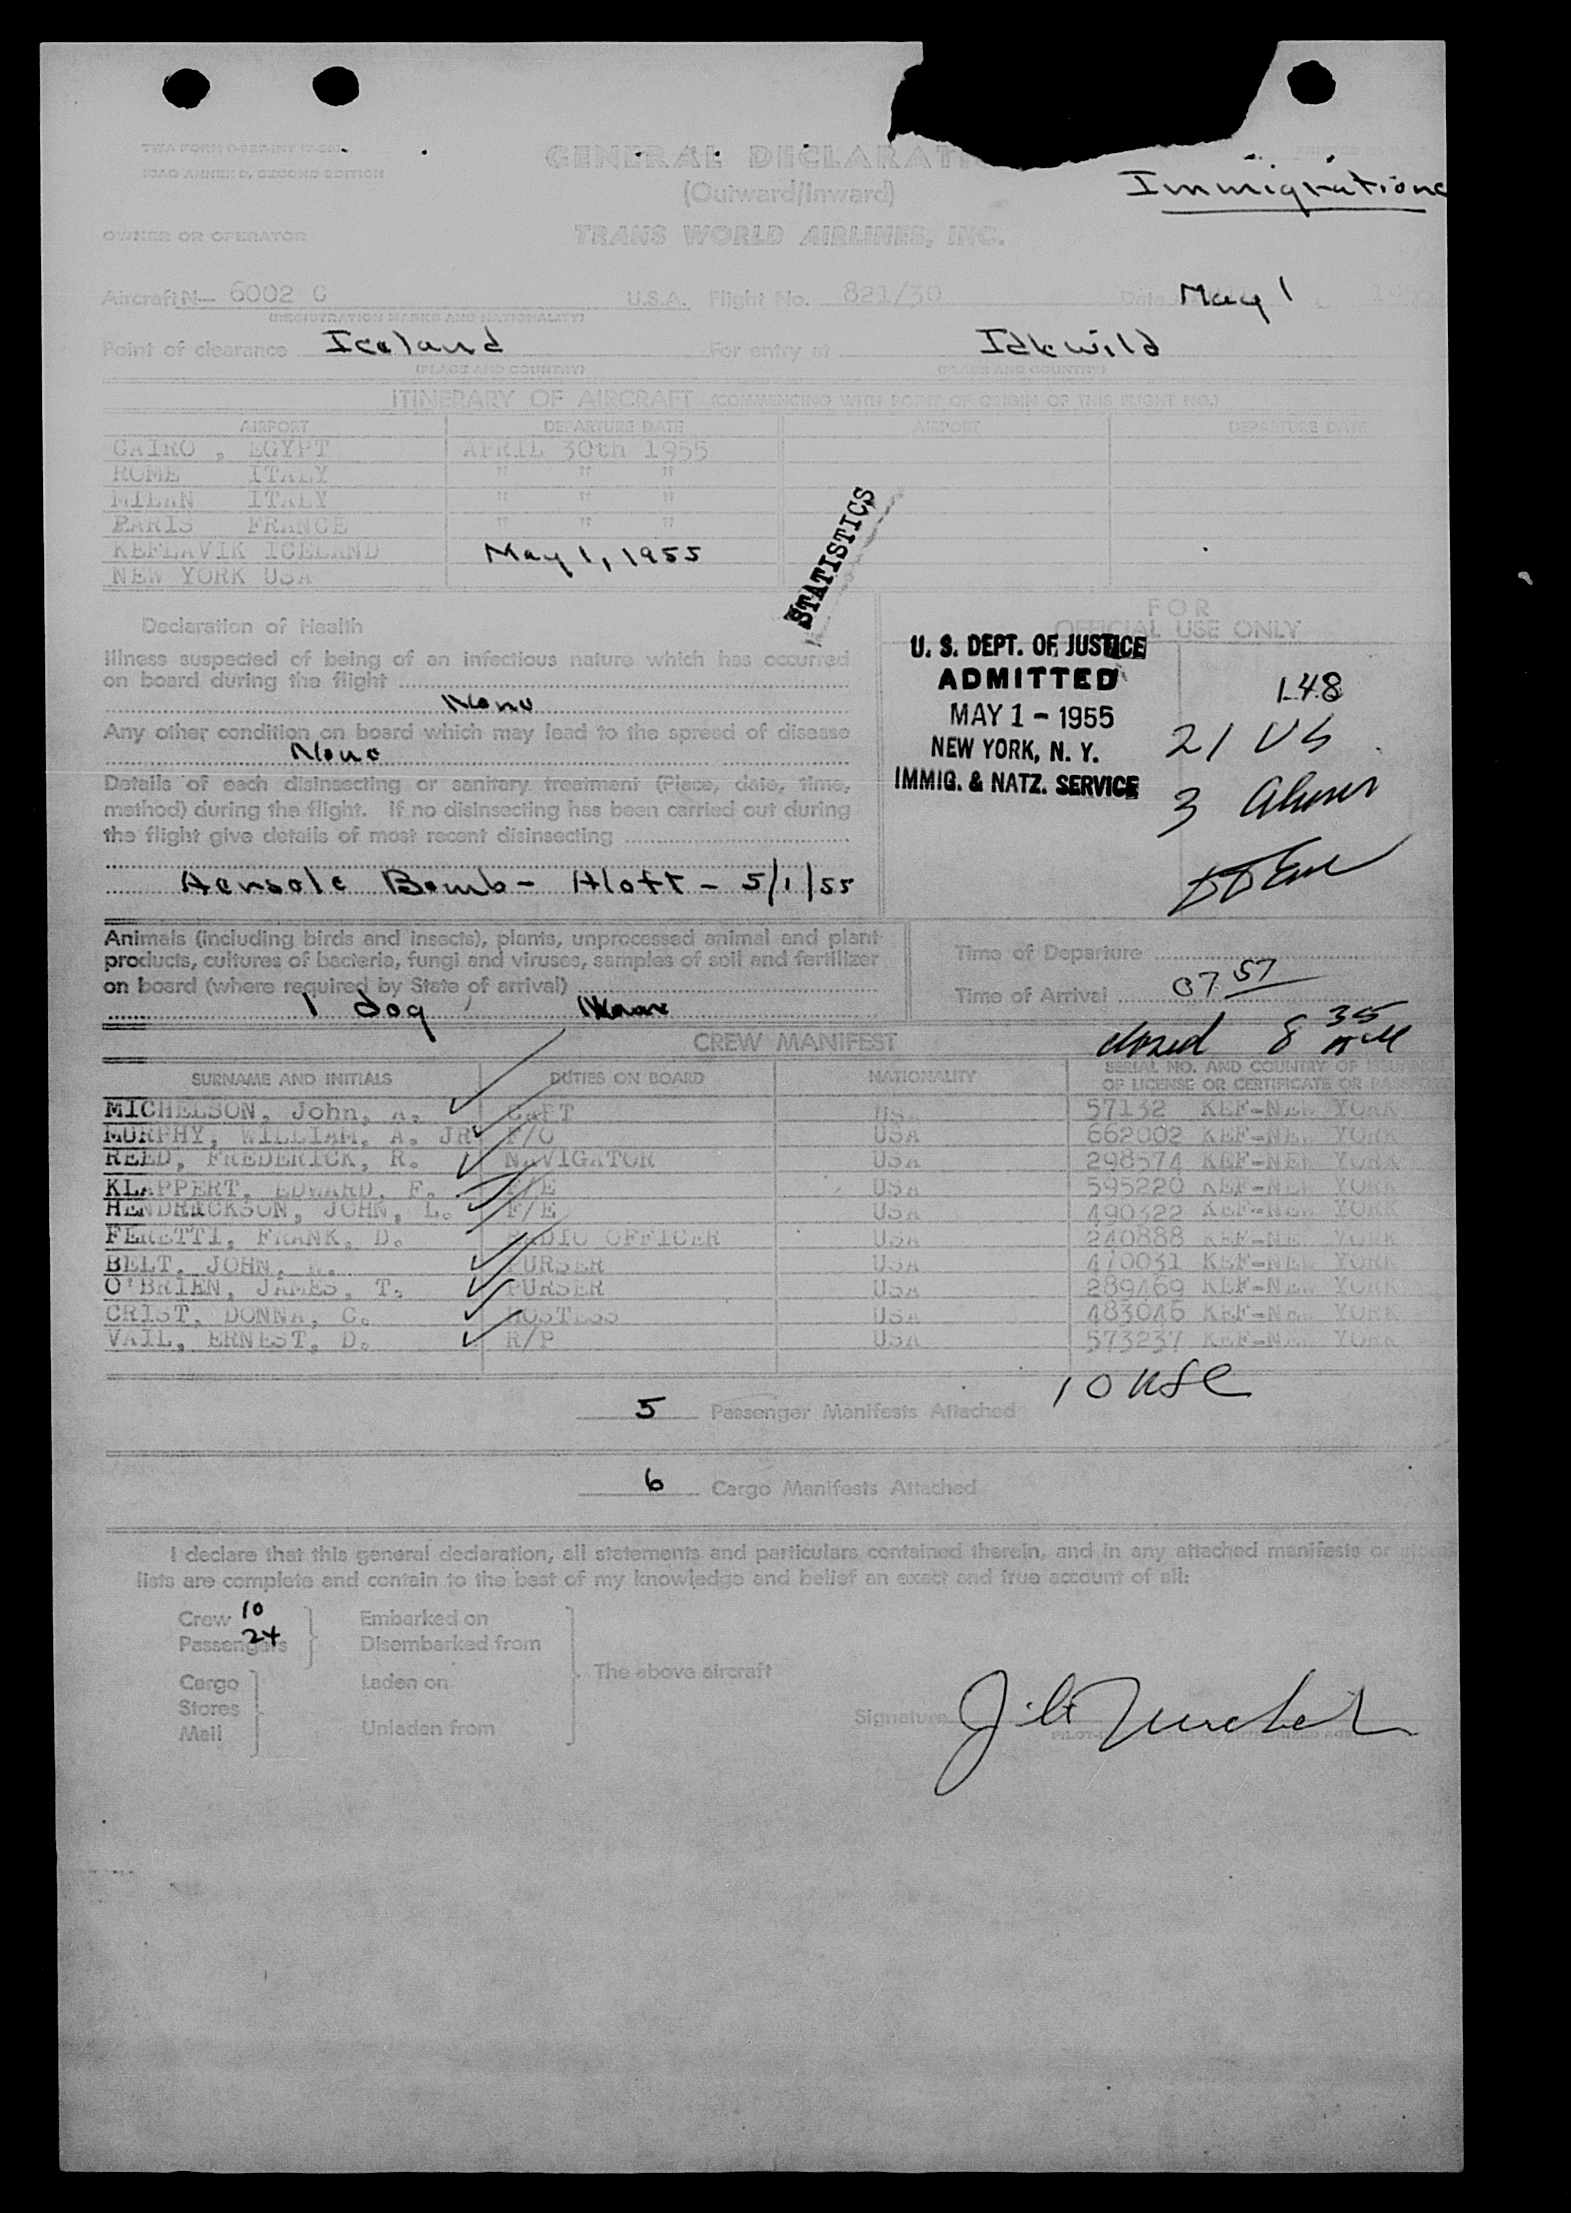 ICAO ANNEX 9, SECOND EDITION
GENERAL
(Outward/Inward)
Immigration
OWNER OR OPERATOR
TRANS WORLD AIRLINES, INC.
Aircraft N- 6002 C U.S.A. Flight No. 821/30 Date May 1
(REGISTRATION MARKS AND NATIONALITY)
Point of clearance Iceland For entry at Idlewild
(PLACE AND COUNTRY) (PLACE AND COUNTRY)
ITINERARY OF AIRCRAFT (COMMENCING WITH POINT OF ORIGIN OF THIS FLIGHT NO.)
AIRPORT DEPARTURE DATE AIRPORT DEPARTURE DATE
CAIRO , EGYPT APRIL 30th 1955
ROME ITALY " " "
MILAN ITALY " " "
PARIS FRANCE " " "
KEFLAVIK ICELAND May 1, 1955
NEW YORK USA
STATISTICS
Declaration of Health
Illness suspected of being of an infectious nature which has occurred
on board during the flight
None
Any other condition on board which may lead to the spread of disease
None
Details of each disinsecting or sanitary treatment (Place, date, time,
method) during the flight. If no disinsecting has been carried out during
the flight give details of most recent disinsecting
Aersole Bomb - Aloft - 5/1/55
FOR
OFFICIAL USE ONLY
U. S. DEPT. OF JUSTICE
ADMITTED
MAY 1 - 1955
NEW YORK, N. Y.
IMMIG. & NATZ. SERVICE
148
21 US
3 Aliens
Animals (including birds and insects), plants, unprocessed animal and plant
products, cultures of bacteria, fungi and viruses, samples of soil and fertilizer
on board (where required by State of arrival)
1 dog
Time of Departure
Time of Arrival 07 57
closed 8 35
CREW MANIFEST
SURNAME AND INITIALS DUTIES ON BOARD NATIONALITY SERIAL NO. AND COUNTRY OF ISSUANCE
OF LICENSE OR CERTIFICATE OR PASSPORT
MICHELSON, John, A. CAPT USA 57132 KEF-NEW YORK
MURPHY, WILLIAM, A. JR F/O USA 662002 KEF-NEW YORK
REED, FREDERICK, R. NAVIGATOR USA 298574 KEF-NEW YORK
KLAPPERT, EDWARD, F. F/E USA 595220 KEF-NEW YORK
HENDRICKSON, JOHN, L. F/E USA 490322 KEF-NEW YORK
FERETTI, FRANK, D. RADIO OFFICER USA 240888 KEF-NEW YORK
BELT, JOHN, PURSER USA 470031 KEF-NEW YORK
O'BRIEN, JAMES, T. PURSER USA 289469 KEF-NEW YORK
CRIST, DONNA, C. HOSTESS USA 483046 KEF-NEW YORK
VAIL, ERNEST, D. R/P USA 573237 KEF-NEW YORK
10 USC
5 Passenger Manifests Attached
6 Cargo Manifests Attached
I declare that this general declaration, all statements and particulars contained therein, and in any attached manifests or
lists are complete and contain to the best of my knowledge and belief an exact and true account of all:
Crew 10 Embarked on
Passengers 24 Disembarked from
The above aircraft
Cargo Laden on
Stores
Mail Unladen from
Signature